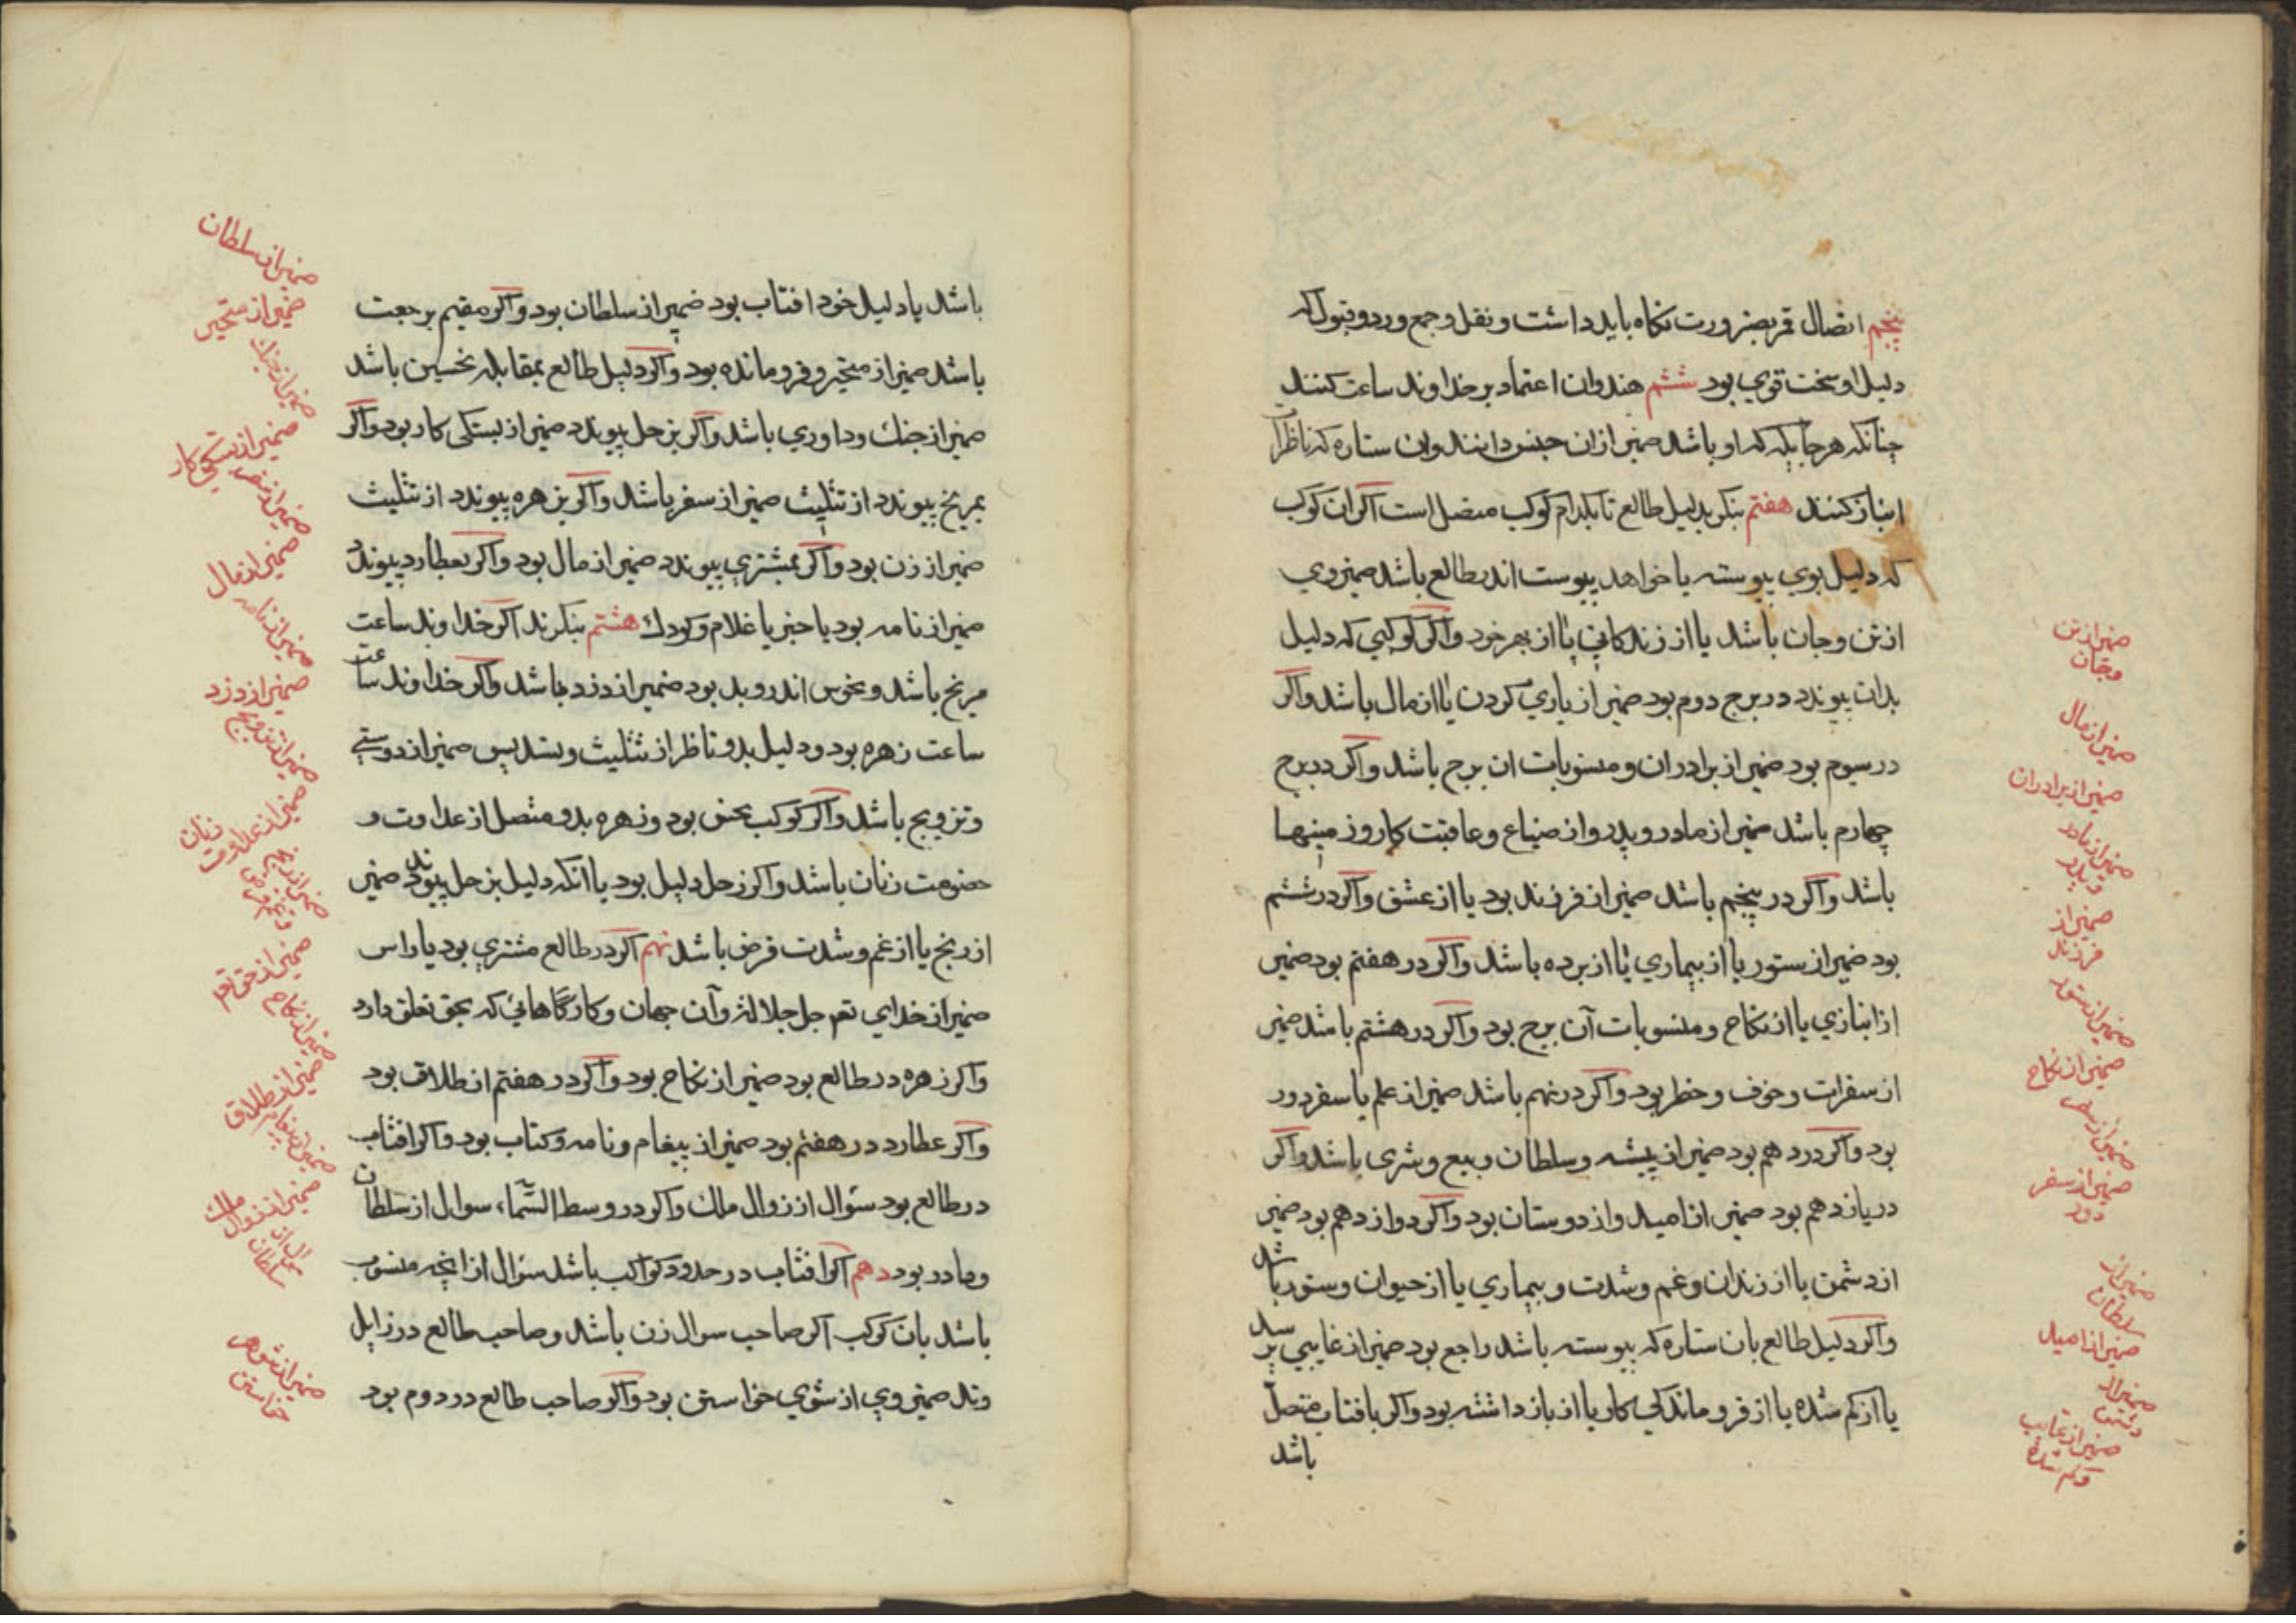 پنجم اتصال قمر بضرورت نکاه باید داشت و نقل و جمع و رد و قبول که
دلیل او سخت قوی بود ششم هندوان اعتماد بر خداوند ساعت کنند
چنانکه هر جایکه که او باشد ضمیر از آن جنس دانند وان ستاره که ناظر را
انباز کنند هفتم بنکر بدلیل طالع تا بکدام کوکب متصل است اکر ان کوکب
که دلیل بوی پیوسته یا خواهد پیوست اندر طالع باشد ضمیر وی
از تن و جان باشد یا از زندکانی یا از بهر خود واکر کوکبی که دلیل
بدان پیوندد در برج دوم بود ضمیر از یاری کردن یا از مال باشد واکر
در سیوم بود ضمیر از برادران و منسوبات ان برج باشد واکر در برج
چهارم باشد ضمیر از مادر و پدر و از ضیاع و عاقبت کار و زمینها
باشد واکر در پنجم باشد ضمیر از فرزند بود یا از عشق واکر در ششم
بود ضمیر از ستور یا از بیماری یا از برده باشد واکر در هفتم بود ضمیر
از انبازی یا از نکاح و منسوبات آن برج بود واکر در هشتم باشد ضمیر
از سفرات و خوف و خطر بود واکر در نهم باشد ضمیر از علم یا سفر دور
بود واکر در دهم بود ضمیر از پیشه و سلطان و بیع و شری باشد واکر
در یازدهم بود ضمیر از امید و از دوستان بود واکر دوازدهم بود ضمیر
از دشمن یا از زندان و غم و شدت و بیماری یا از حیوان و ستور باشد
واکر دلیل طالع بان ستاره که پیوسته باشد راجع بود ضمیر از غایبی پرسد
یا از کم شده یا از فروماندکی کار یا از بازداشته بود واکر بافتاب متصل
باشد
ضمیر از تن
وجان
ضمیر از مال
ضمیر از برادران
ضمیر از مادر
و پدر
ضمیر از
فرزند
ضمیر از ستور
ضمیر از نکاح
ضمیر از سفر
ضمیر از سفر
دور
ضمیر از
سلطان
ضمیر از امید
ضمیر از
دشمن
ضمیر از غایب
وکم شده
باشد یا دلیل خود افتاب بود ضمیر از سلطان بود واکر مقیم برجعت
باشد ضمیر از متحیر و فرومانده بود واکر دلیل طالع بمقابله نحسین باشد
ضمیر از جنك و داوری باشد واکر بزحل پیوندد ضمیر از بستکی کار بود واکر
بمریخ پیوندد از تثلیث ضمیر از سفر باشد واکر بزهره پیوندد از تثلیث
ضمیر از زن بود واکر بمشتری پیوندد ضمیر از مال بود واکر بعطارد پیوندد
ضمیر از نامه بود یا خبر یا غلام و کودك هشتم بنکرند اکر خداوند ساعت
مریخ باشد و نحوس اندرو بد بود ضمیر از دزد باشد واکر خداوند ساعت
ساعت زهره بود و دلیل بدو ناظر از تثلیث و تسدیس ضمیر از دوستی
و تزویج باشد واکر کوکب نحس بود و زهره بدو متصل از عداوت و
خصومت زنان باشد واکر زحل دلیل بود یا انکه دلیل بزحل پیوندد ضمیر
از رنج یا از غم و شدت قرض باشد نهم اکر در طالع مشتری بود یا راس
ضمیر از خدای تعم جل جلاله و آن جهان و کارکاهائی که بحق تعلق دارد
واکر زهره در طالع بود ضمیر از نکاح بود واکر در هفتم از طلاق بود
واکر عطارد در هفتم بود ضمیر از پیغام و نامه و کتاب بود واکر افتاب
در طالع بود سئوال از زوال ملك واکر در وسط السّماء سوال از سلطان
و مادر بود دهم اکر افتاب در حدود کواکب باشد سئوال از انچه منسوب
باشد بان کوکب اکر صاحب سوال زن باشد و صاحب طالع در زایل
وتد ضمیر وی از شوی خواستن بود واکر صاحب طالع در دوم بود
ضمیر از سلطان
ضمیر از متحیر
ضمیر از جنك
ضمیر از بستکی کار
ضمیر از سفر
ضمیر از مال
ضمیر از نامه
ضمیر از دزد
ضمیر از تزویج
ضمیر از عداوت
زنان
ضمیر از رنج
وغم و قرض
ضمیر از حق تعم
ضمیر از نکاح
ضمیر از طلاق
ضمیر از پیغام
ضمیر از زوال ملك
سوال از
سلطان
ضمیر از شوهر
خواستن